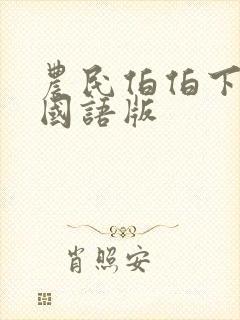 農民伯伯下
國語版
肖照安